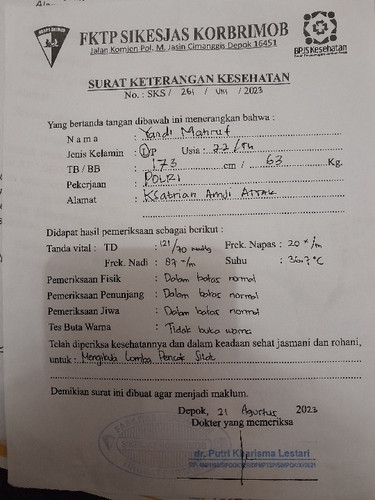 FKTP SIKESJAS KORBRIMOB
Jalan Komjen Pol. M. Jasin Cimanggis Depok 16451
BPJS Kesehatan
SURAT KETERANGAN KESEHATAN
No. : SKS / 261 / VIII / 2023
Yang bertanda tangan dibawah ini menerangkan bahwa :
Nama : Yandi Mahruf
Jenis Kelamin : L/P Usia : 22 / th
TB / BB : 173 cm / 63 Kg.
Pekerjaan : POLRI
Alamat : Ksatrian Amji Attak
Didapat hasil pemeriksaan sebagai berikut :
Tanda vital : TD : 121/70 mmHg Frek. Napas : 20 x/m
Frek. Nadi : 87 x/m Suhu : 36.7 °C
Pemeriksaan Fisik : Dalam batas normal
Pemeriksaan Penunjang : Dalam batas normal
Pemeriksaan Jiwa : Dalam batas normal
Tes Buta Warna : Tidak buta warna
Telah diperiksa kesehatannya dan dalam keadaan sehat jasmani dan rohani,
untuk : Mengikuti Lomba Pencak Silat
Demikian surat ini dibuat agar menjadi maklum.
Depok, 21 Agustus 2023
Dokter yang memeriksa
dr. Putri Kharisma Lestari